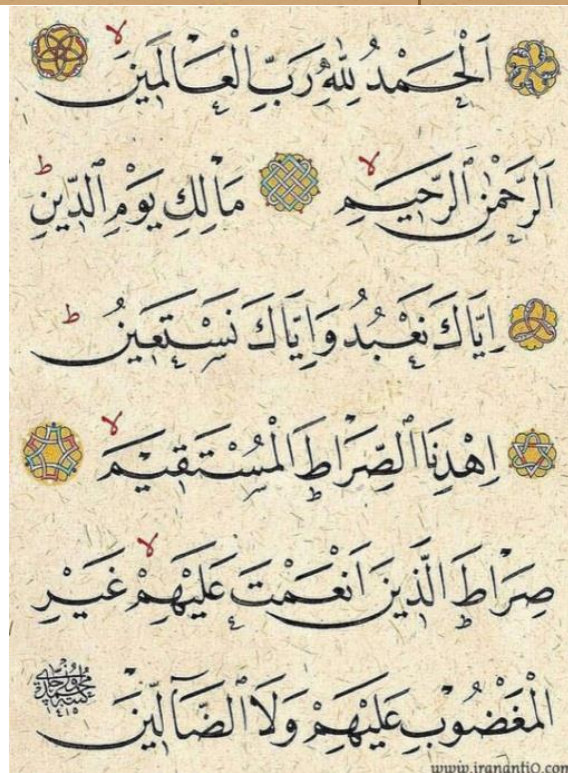 اَلْحَمْدُ لِلّٰهِ رَبِّ الْعَالَمِينَ ۙ
اَلرَّحْمٰنِ ٱلرَّحِيمِ ۙ مَالِكِ يَوْمِ ٱلدِّينِ ۗ
اِيَّاكَ نَعْبُدُ وَاِيَّاكَ نَسْتَعِينُ ۗ
اِهْدِنَا ٱلصِّرَاطَ الْمُسْتَقِيمَ ۙ
صِرَاطَ الَّذِينَ اَنْعَمْتَ عَلَيْهِمْ ۙ غَيْرِ
الْمَغْضُوبِ عَلَيْهِمْ وَلَا ٱلضَّٓالِّينَ
١٤١٥
www.irananti0.com